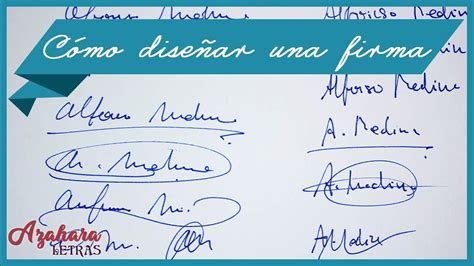 Alfonso Medina
Alfonso Medina
Cómo diseñar una firma
Alfonso Medina
Alfonso Medina
A. Medina
M. Medina
A. Medina
M.
A. Medina
Azahara
LETRAS